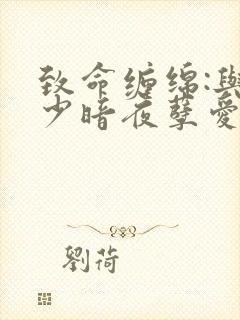 致命缠绵:與
少暗夜孽爱
劉荷